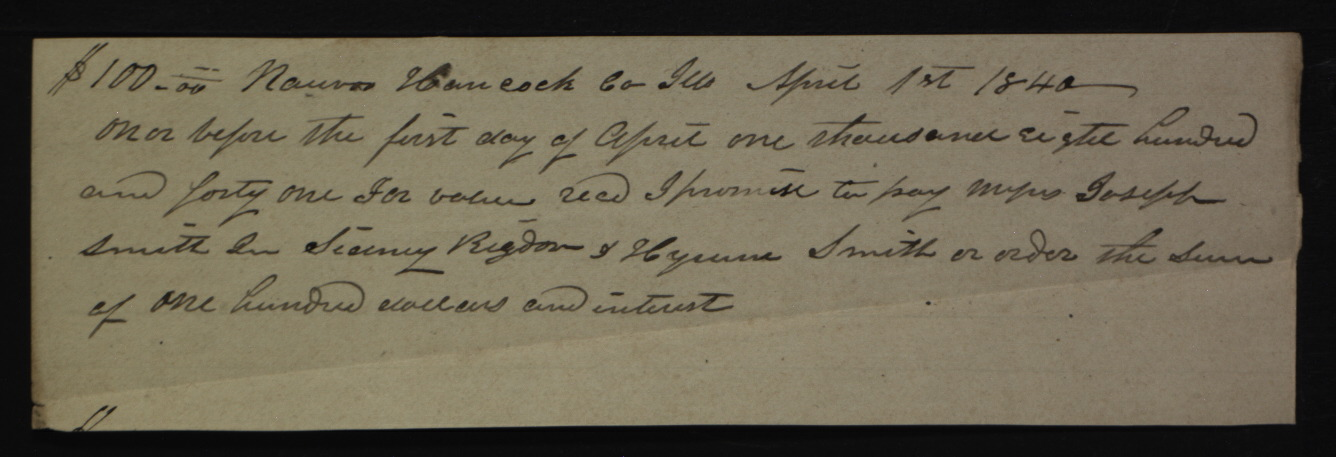 $100-00 Nauvoo Hancock Co Ills April 1st 1840
on or before the first day of April one thousand eight hundred
and forty one For value recd I promise to pay Messrs Joseph
Smith Jn Sidney Rigdon & Hyrum Smith or order the Sum
of one hundred dollars and interest